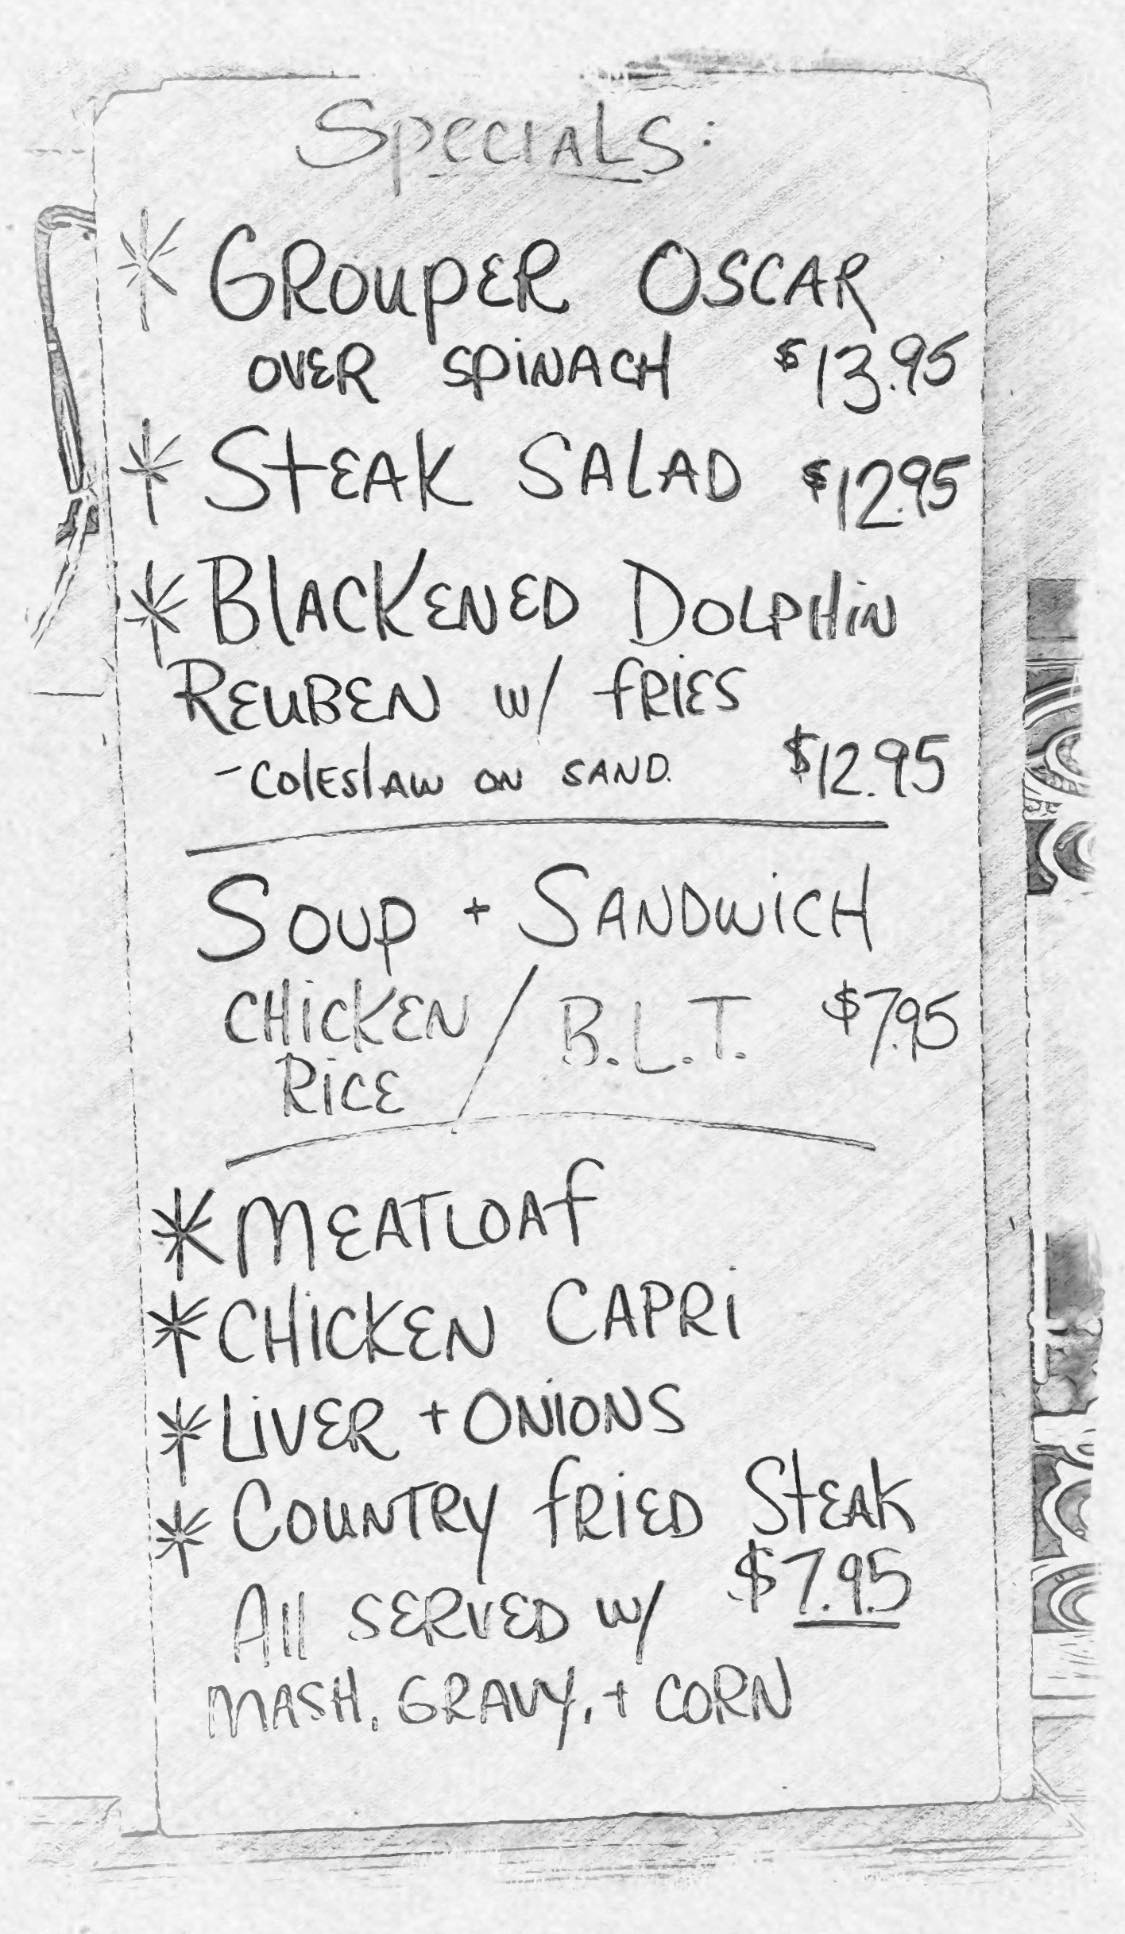 Specials:
* Grouper Oscar
over spinach $13.95
* Steak Salad $12.95
* Blackened Dolphin
Reuben w/ fries
- Coleslaw on sand. $12.95
Soup + Sandwich
Chicken / B.L.T. $7.95
Rice
* Meatloaf
* Chicken Capri
* Liver + Onions
* Country fried Steak
$7.95
All served w/
mash, gravy, + corn